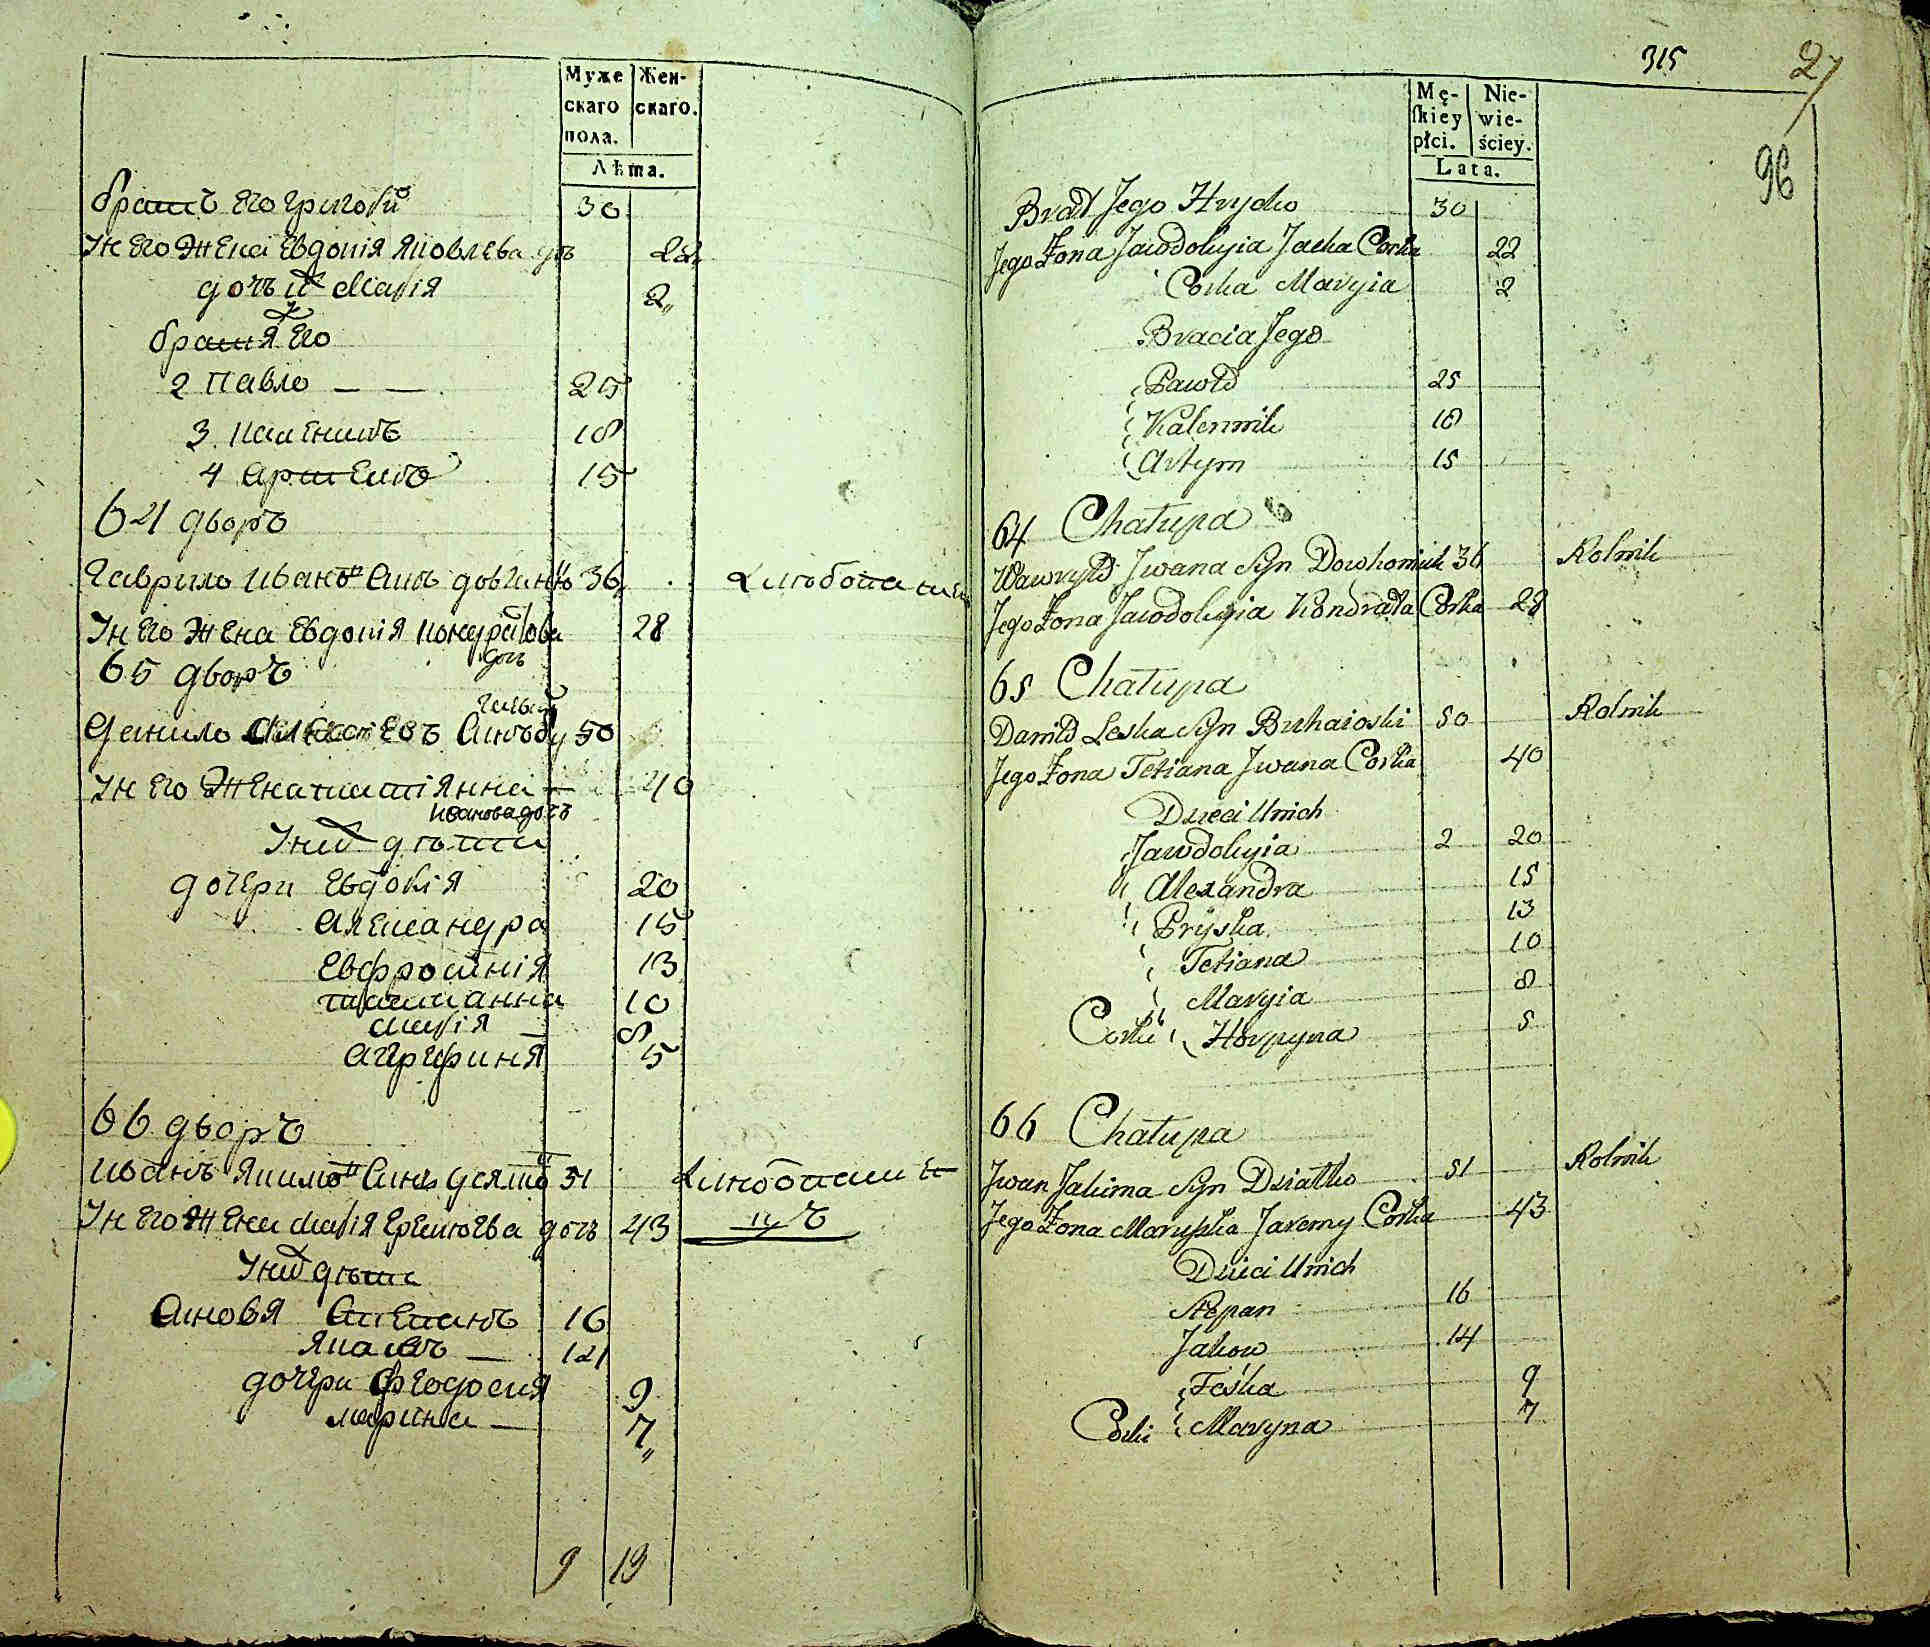 Муже
скаго
пола.
Жен-
скаго.
Лѣта.
братъ Его григорій 30
Ін Его Жена Евдокія яковлева дочь 22
дочъ их Марія 2
братя Его
2 Павло — — 25
3 Каленикъ 18
4 артемъ 15
64 дворъ
Гаврило Ивановъ Синъ довгини 36
Ін Его Жена Евдокія кондратова дочъ 28
65 дворъ
Данило 50
Ін Его Жена татіянна — Иванова дочъ 40
Іних дѣти
дочери Евдокія 20
александра 15
Евфросинія 13
татіанна 10
марія — 8
агрифиня 5
66 дворъ
иванъ якимовъ Синъ дятко 51
Ін Его Жена Марія Еремѣева дочъ 43
Іних дѣти
Синовя Степанъ 16
яковъ — 14
дочери феодосия 9
марина — 7
9 13
315
27
96
Mę-
skiey
płci.
Nie-
wie-
ściey.
Lata.
Brat Jego Hryćko 30
Jego Żona Jawdokyia Jacka Corka 22
Corka Maryia 2
Bracia Jego
Pawło 25
Kalennik 18
Artym 15
64 Chatupa
Wawryło Jwana Syn Dowhoniuk 36 Rolnik
Jego Żona Jawdokyia Kondrata Corka 28
65 Chatupa
Daniło Leska Syn Buhaioski 50 Rolnik
Jego Żona Tetiana Jwana Corka 40
Dzieci Unich
Jawdokyia 2 20
Alexandra 15
Pryska 13
Tetiana 10
Maryia 8
Corki Horpyna 5
66 Chatupa
Jwan Jakima Syn Dziatko 51 Rolnik
Jego Żona Maryska Jaremy Corka 43
Dzieci Unich
Stepan 16
Jakow 14
Feśka 9
Corki Maryna 7